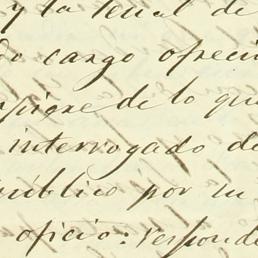 y la
do cargo ofreci
de lo que
interrogado de
público por su
oficio: responde